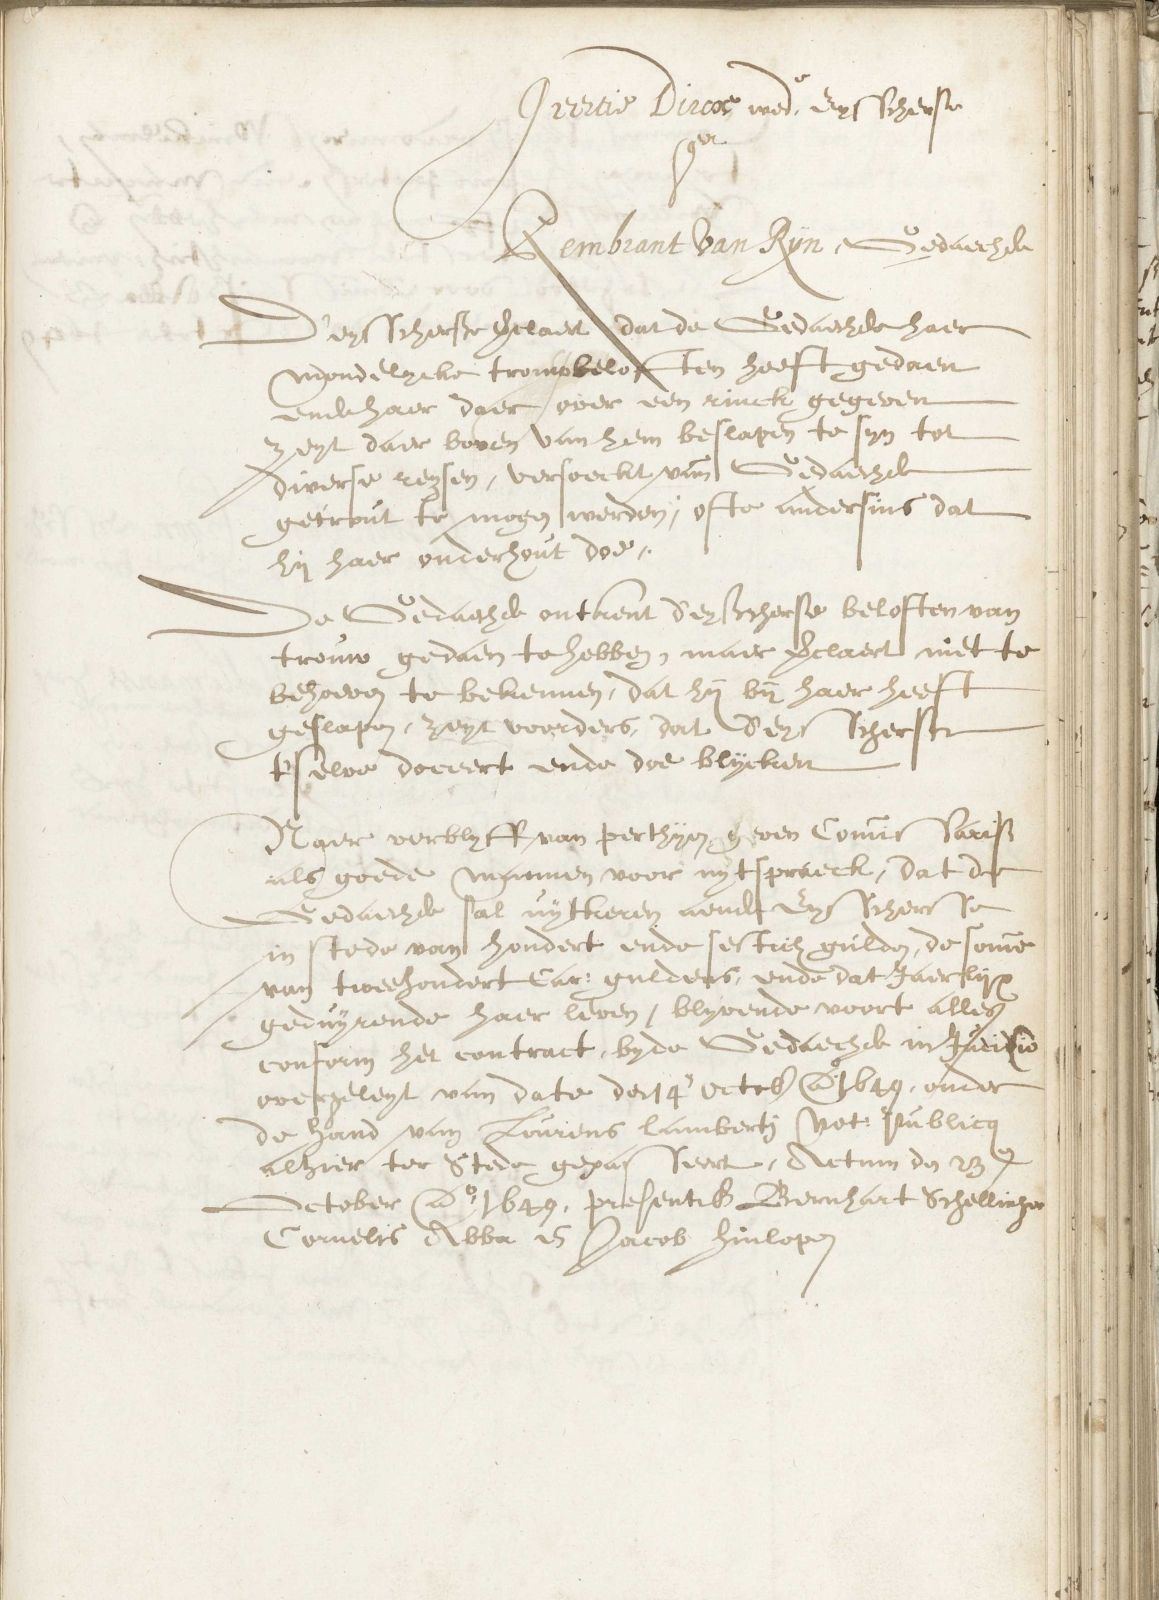 Geertie Dircx wed.e Eysschersse
Rembrant van Rijn, Gedaechde
D'eysschersse verclaert dat de Gedaechde haer
mondelycke trouwbeloften heeft gedaen
ende haer daer over een rinck gegeven
zeyt daer boven van hem beslapen te syn tot
diverse reysen, versoeckt van Gedaechde
getrout te mogen werden, ofte andersins dat
hij haer onderhout doe,.
De Gedaechde ontkent d'eysschersse beloften van
trouw gedaen te hebben, maer verclaert niet te
behoeven te bekennen, dat hij bij haer heeft
geslapen, zeyt voorders, dat d'eysschersse
t'selve doceert ende doe blijcken
Naer verblyff van perthijen geven Comissarise
als goede mannen voor uijtspraeck, dat de
Gedaechde sal uijtkeren aende Eysschersse
in stede van hondert ende sestich gulden, de somme
van tweehondert Car: guldens, ende dat Jaerlijx
geduijrende haer leven, blyvende voort alles
conform het contract, byde Gedaechde in Judicio
overgeleyt van date den 14 octob. Ao 1649, onder
de hand van Lourens Lamberti Not: publicq
alhier ter Stede gepasseert, Actum den 23
October Ao 1649, presentib. Bernhart Schellinger
Cornelis Abba & Jacob Hinlopen